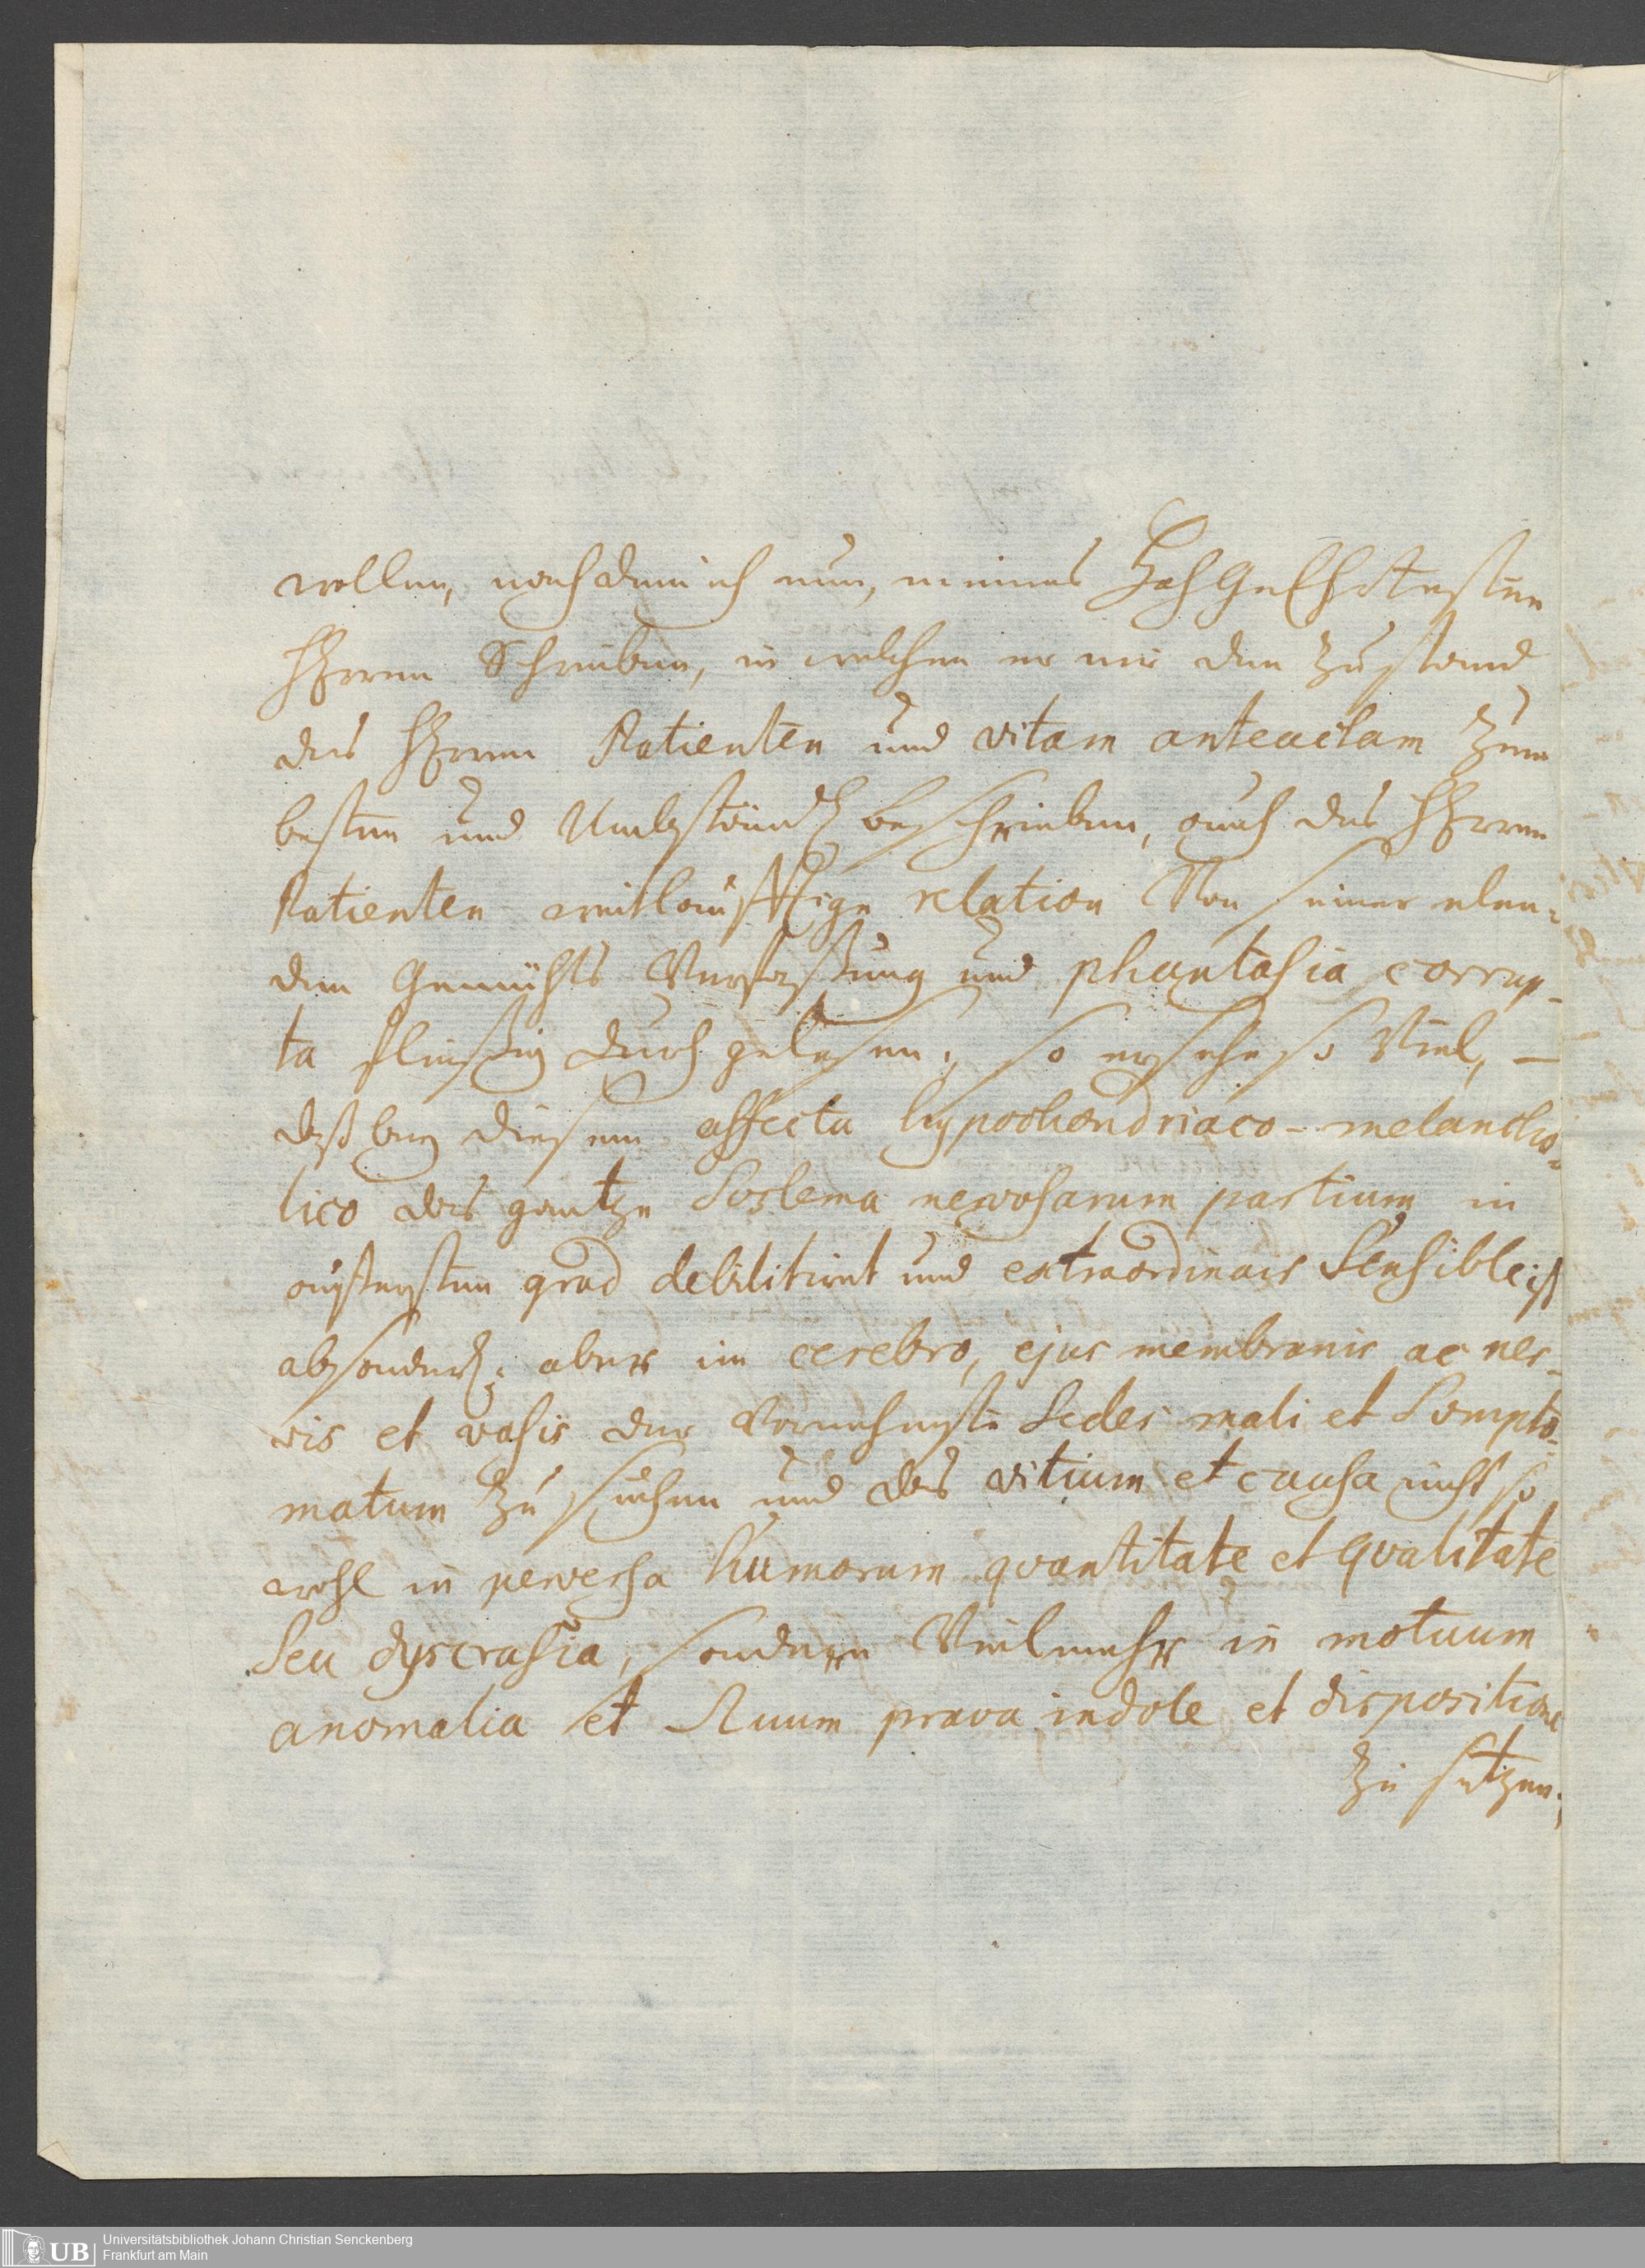 wollen, nachdem ich nun, meines HochGeEhrtesten
HErren Schreiben, in welchen er mir den Zustand
des HErren Patienten und vitam anteactam zum
besten und Umbständl. beschrieben, auch des HErren
Patienten weitläufftige relation Von seiner elen-
den Gemühts Verfaßung und phantasia corrup-
ta fleißig durch gelesen; so ersehe so Viel, –
daß bey diesem affectu hypochondriaco-melancho-
lico das gantze Systema nervosarum partium in
äußersten grad debilitiret und extraordinair Sensible ist
absonderl. aber im cerebro, ejus membranis ac ner-
vis et vasis der Vornehmste Sedes mali et Sympto-
matum zu suchen und das vitium et causa nicht so
wohl in perversa humorum qvantitate et qvalitate
Seu dyscrasia, sondern Vielmehr in motuum
anomalia et prava indole et dispositione
zu setzen;
Universitätsbibliothek Johann Christian Senckenberg
UB Frankfurt am Main